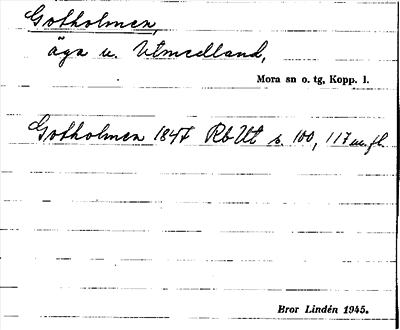 Gotholmen,
äga u. Utmedland,
Mora sn o. tg, Kopp. l.
Gotholmen 1847 RbUt s. 100, 117 m.fl.
Bror Lindén 1945.